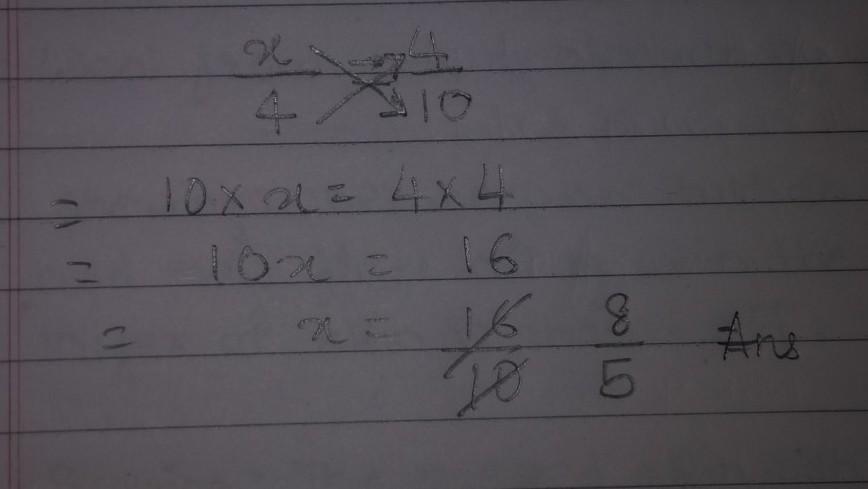 x/4 = 4/10
= 10 × x = 4 × 4
= 10x = 16
= x = 16/10 8/5 Ans